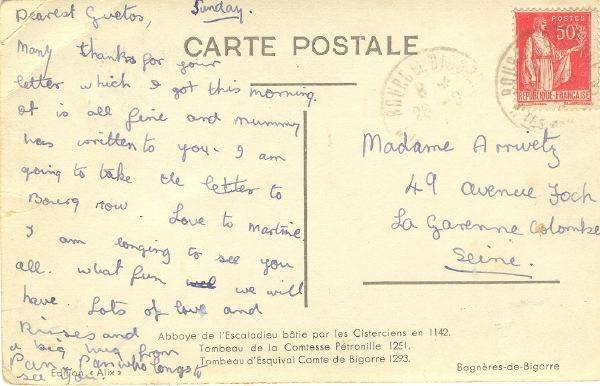 Sunday.
Dearest Guetos,
CARTE POSTALE
Many thanks for your
letter which I got this morning.
It is all fine and mummy
has written to you. I am
going to take the letter to
Bourg now. Love to Martine
I am longing to see you
all. What fun we will
have. Lots of love and
Kisses and
a big hug from
Pan. Pan who longs to
see you
POSTES
50c
REPUBLIQUE FRANÇAISE
Madame Arruetz
49 avenue Foch
La Garenne Colombe
Seine.
Abbaye de l'Escaladieu bâtie par les Cisterciens en 1142.
Tombeau de la Comtesse Pétronille 1251.
Tombeau d'Esquival Comte de Bigorre 1293.
Edition «Alix»
Bagnères-de-Bigorre